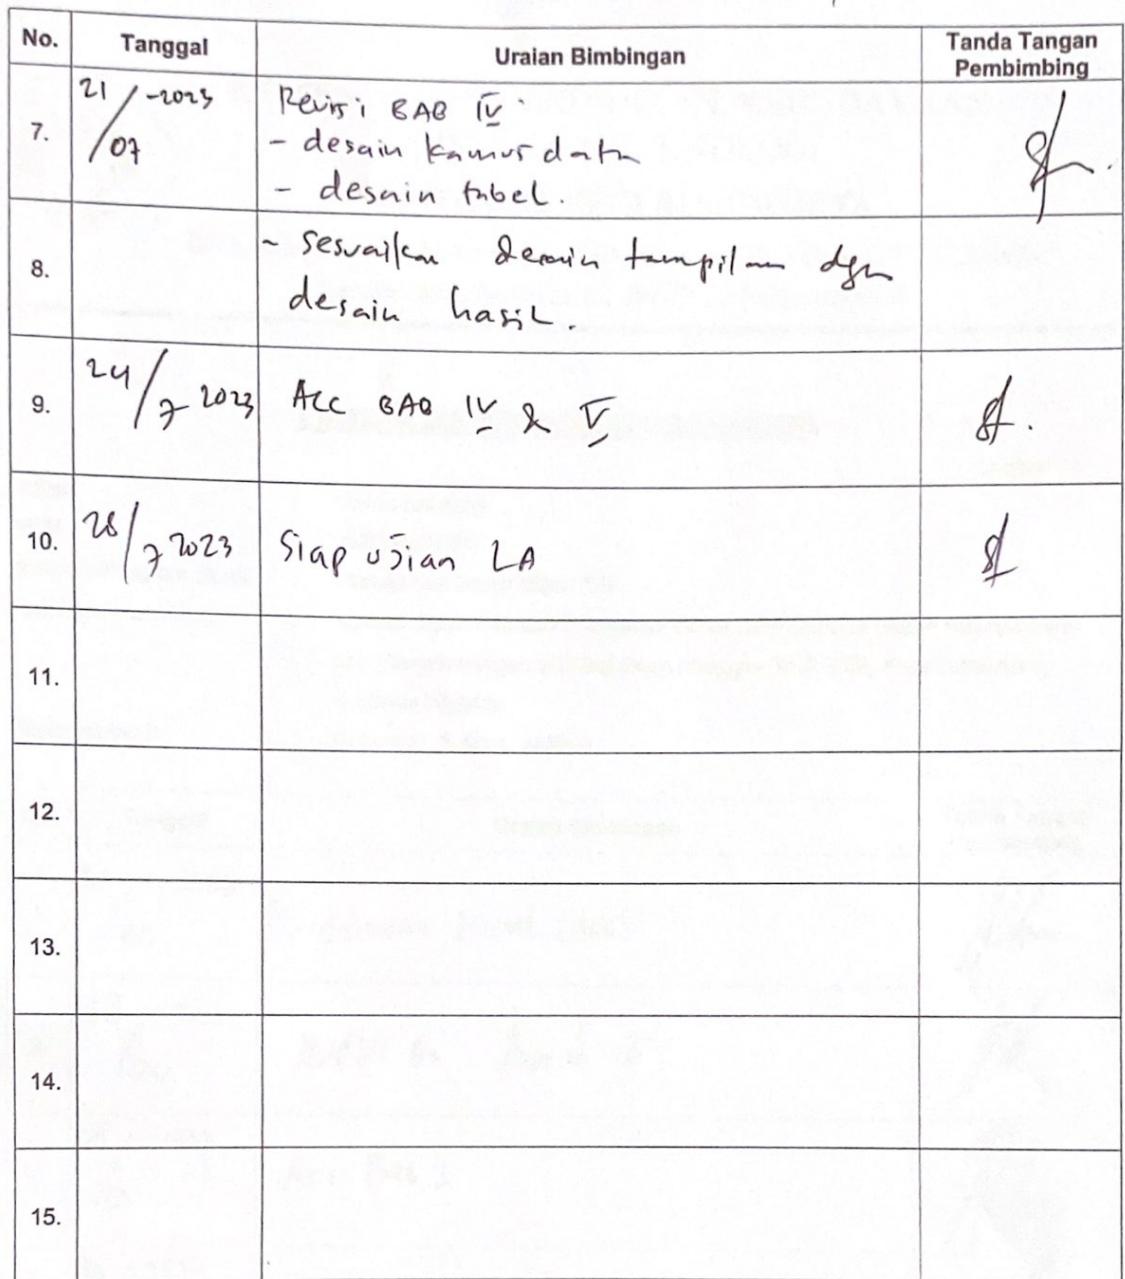 No. Tanggal Uraian Bimbingan Tanda Tangan Pembimbing
7. 21/07-2023 Revisi BAB IV
- desain kamus data
- desain tabel
8. - sesuaikan desain tampilan dgn
desain hasil.
9. 24/7 2023 ACC BAB IV & V
10. 28/7 2023 Siap Ujian LA
11.
12.
13.
14.
15.